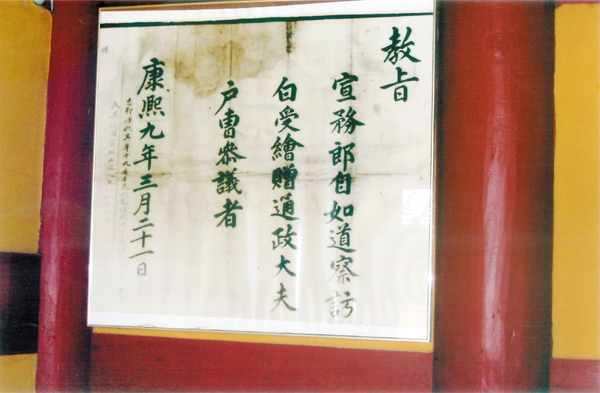 教旨
宣務郎自如道察訪
白受繪贈通政大夫
戶曺叅議者
康熙九年三月二十一日